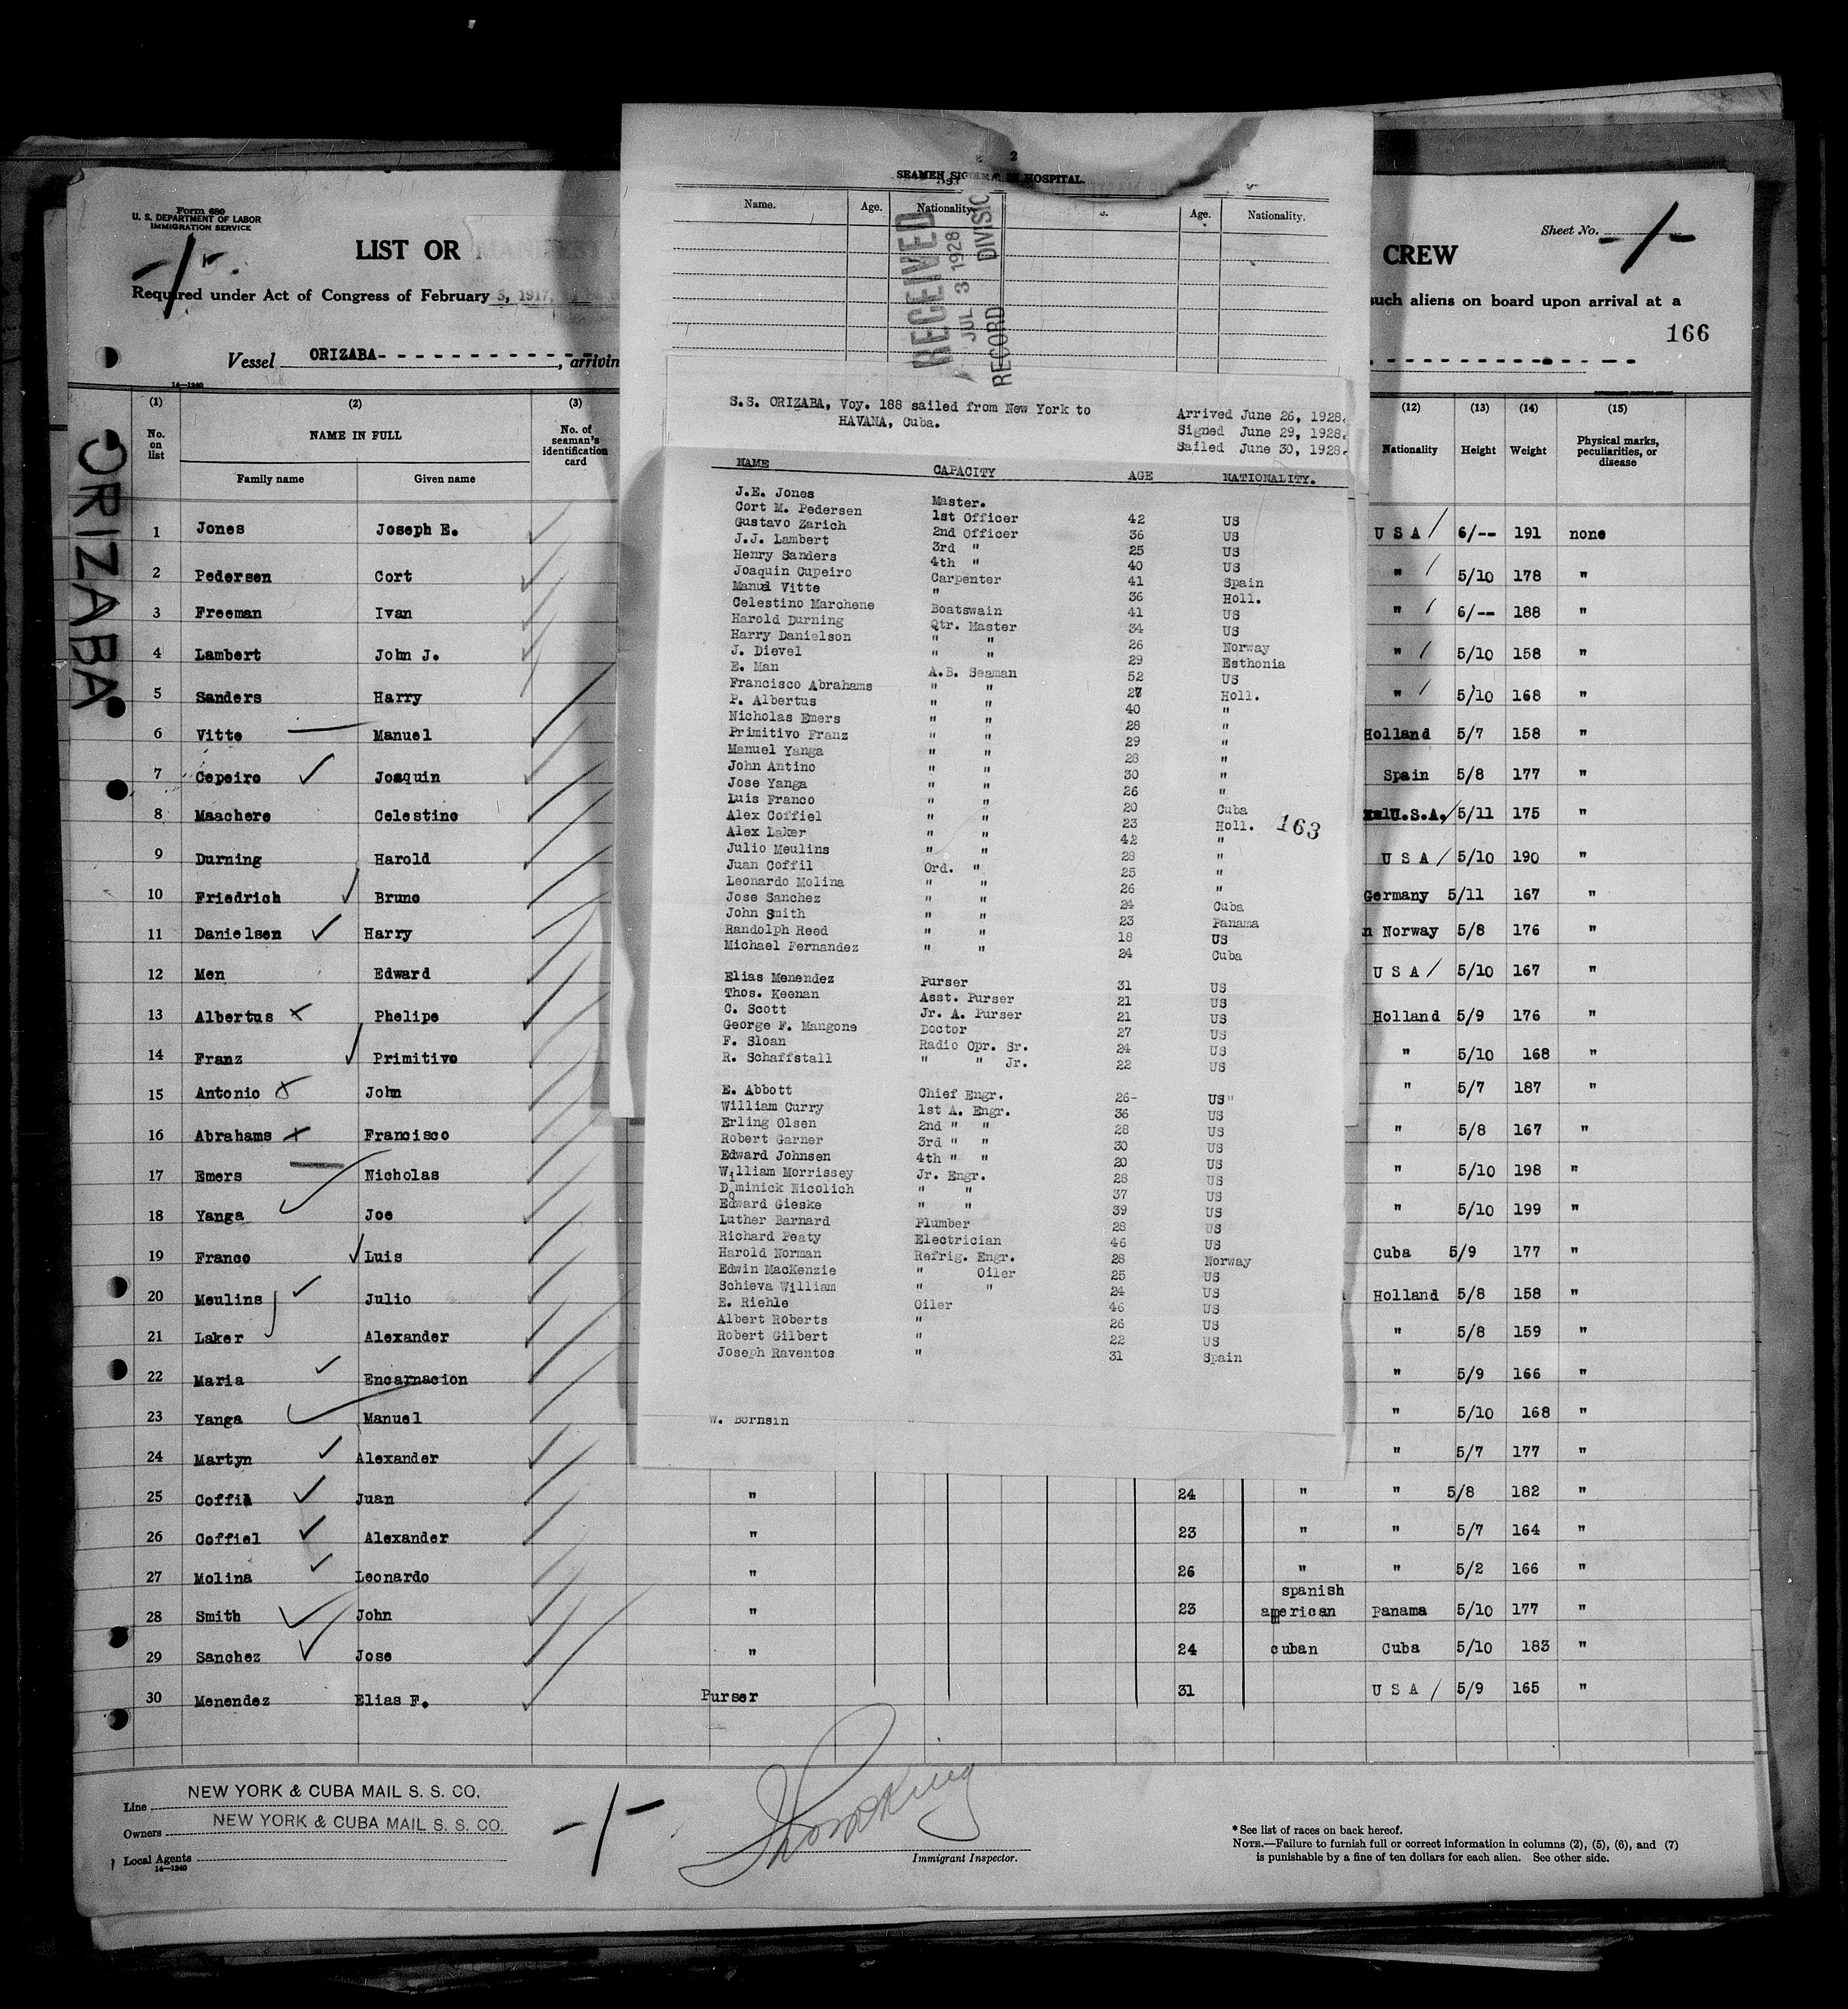 Form 680
U. S. DEPARTMENT OF LABOR
IMMIGRATION SERVICE
LIST OR MANIFEST
CREW
Sheet No. -1-
-1-
Required under Act of Congress of February 5, 1917,
such aliens on board upon arrival at a
166
Vessel ORIZABA- - - - - - - - - - - - - -, arrivin
14—1240
ORIZABA
2
SEAMEN SIC IN HOSPITAL.
Name. Age. Nationality Age. Nationality.
RECEIVED
JUL 3 1928
RECORD DIVISIO
S.S. ORIZABA, Voy. 188 sailed from New York to
HAVANA, Cuba.
Arrived June 26, 1928.
Signed June 29, 1928.
Sailed June 30, 1928.
NAME CAPACITY AGE NATIONALITY.
J.E. Jones Master.
Cort M. Pedersen 1st Officer 42 US
Gustavo Zarich 2nd Officer 36 US
J.J. Lambert 3rd " 25 US
Henry Sanders 4th " 40 US
Joaquin Cupeiro Carpenter 41 Spain
Manuel Vitte " 36 Holl.
Celestino Marchene Boatswain 41 US
Harold Durning Qtr. Master 34 US
Harry Danielson " " 26 Norway
J. Dievel " " 29 Esthonia
E. Man A.B. Seaman 52 US
Francisco Abrahams " " 27 Holl.
P. Albertus " " 40 "
Nicholas Emers " " 28 "
Primitivo Franz " " 29 "
Manuel Yanga " " 28 "
John Antino " " 30 "
Jose Yanga " " 26 "
Luis Franco " " 20 Cuba
Alex Coffiel " " 23 Holl. 163
Alex Laker " " 42 "
Julio Meulins " " 28 "
Juan Coffil Ord. " 25 "
Leonardo Molina " " 26 "
Jose Sanchez " " 24 Cuba
John Smith " " 23 Panama
Randolph Reed " " 18 US
Michael Fernandez " " 24 Cuba
Elias Menendez Purser 31 US
Thos. Keenan Asst. Purser 21 US
C. Scott Jr. A. Purser 21 US
George F. Mangone Doctor 27 US
F. Sloan Radio Opr. Sr. 24 US
R. Schaffstall " " Jr. 22 US
E. Abbott Chief Engr. 26- US"
William Curry 1st A. Engr. 36 US
Erling Olsen 2nd " " 28 US
Robert Garner 3rd " " 30 US
Edward Johnsen 4th " " 20 US
William Morrissey Jr. Engr. 28 US
Dominick Nicolich " " 37 US
Edward Gieske " " 39 US
Luther Barnard Plumber 28 US
Richard Peaty Electrician 46 US
Harold Norman Refrig. Engr. 28 Norway
Edwin MacKenzie " Oiler 25 US
Schieva William " " 24 US
E. Riehle Oiler 46 US
Albert Roberts " 26 US
Robert Gilbert " 22 US
Joseph Raventos " 31 Spain
W. Bornsin
(1) (2) (3) (12) (13) (14) (15)
No. on list NAME IN FULL No. of seaman's identification card Nationality Height Weight Physical marks, peculiarities, or disease
Family name Given name
1 Jones Joseph E. U S A / 6/-- 191 none
2 Pedersen Cort " / 5/10 178 "
3 Freeman Ivan " / 6/-- 188 "
4 Lambert John J. " / 5/10 158 "
5 Sanders Harry " / 5/10 168 "
6 Vitte Manuel Holland 5/7 158 "
7 Cepeiro Joaquin Spain 5/8 177 "
8 Maachere Celestino U.S.A./ 5/11 175 "
9 Durning Harold U S A / 5/10 190 "
10 Friedrich Bruno Germany 5/11 167 "
11 Danielsen Harry n Norway 5/8 176 "
12 Men Edward U S A / 5/10 167 "
13 Albertus Phelipe Holland 5/9 176 "
14 Franz Primitivo " 5/10 168 "
15 Antonio John " 5/7 187 "
16 Abrahams Francisco " 5/8 167 "
17 Emers Nicholas " 5/10 198 "
18 Yanga Joe " 5/10 199 "
19 Franco Luis Cuba 5/9 177 "
20 Meulins Julio Holland 5/8 158 "
21 Laker Alexander " 5/8 159 "
22 Maria Encarnacion " 5/9 166 "
23 Yanga Manuel " 5/10 168 "
24 Martyn Alexander " 5/7 177 "
25 Coffil Juan " 24 " " 5/8 182 "
26 Coffiel Alexander " 23 " " 5/7 164 "
27 Molina Leonardo " 26 " " 5/2 166 "
28 Smith John " 23 spanish american Panama 5/10 177 "
29 Sanchez Jose " 24 cuban Cuba 5/10 183 "
30 Menendez Elias F. Purser 31 U S A / 5/9 165 "
Line NEW YORK & CUBA MAIL S. S. CO.
Owners NEW YORK & CUBA MAIL S. S. CO.
Local Agents
14—1240
-1-
Immigrant Inspector.
* See list of races on back hereof.
NOTE.—Failure to furnish full or correct information in columns (2), (5), (6), and (7)
is punishable by a fine of ten dollars for each alien. See other side.